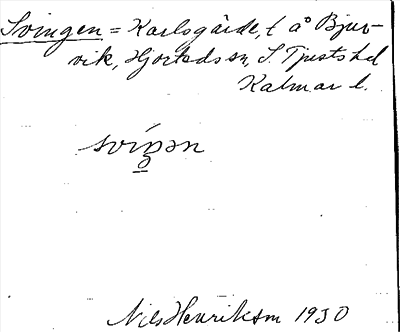 Svingen = Karlsgärde, t å Bjur-
vik, Hjorteds sn, S. Tjusts hd
Kalmar l.
Nils Henriksson 1930